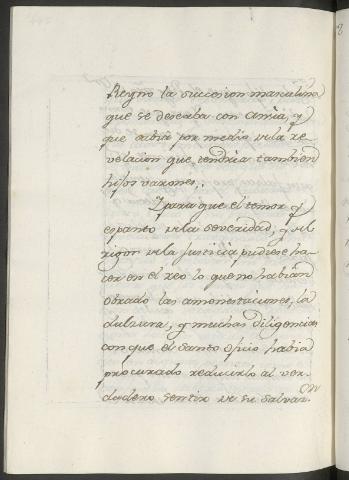 Reyno la succesion masculina
que se deseaba con ansia, y
que sabia por medio de la re-
velacion que tendria tambien
hijos varones.
Y para que el temor y
espanto de la severidad, y del
rigor de la Justicia pudiese ha-
cer en el reo lo que no habian
obrado las amonestaciones, la
dulzura, y muchas diligencias
con que el Santo Oficio habia
procurado reducirlo al ver-
dadero sentir de su salvac.on